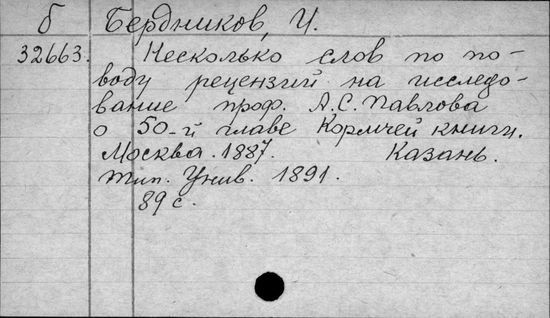 б Бердников, И.
32663. Несколько слов по по-
воду рецензий на исследо-
вание проф. А.С. Павлова
о 50-й главе Кормчей книги.
Москва. 1887. Казань.
Тип. Унив. 1891.
89 с.